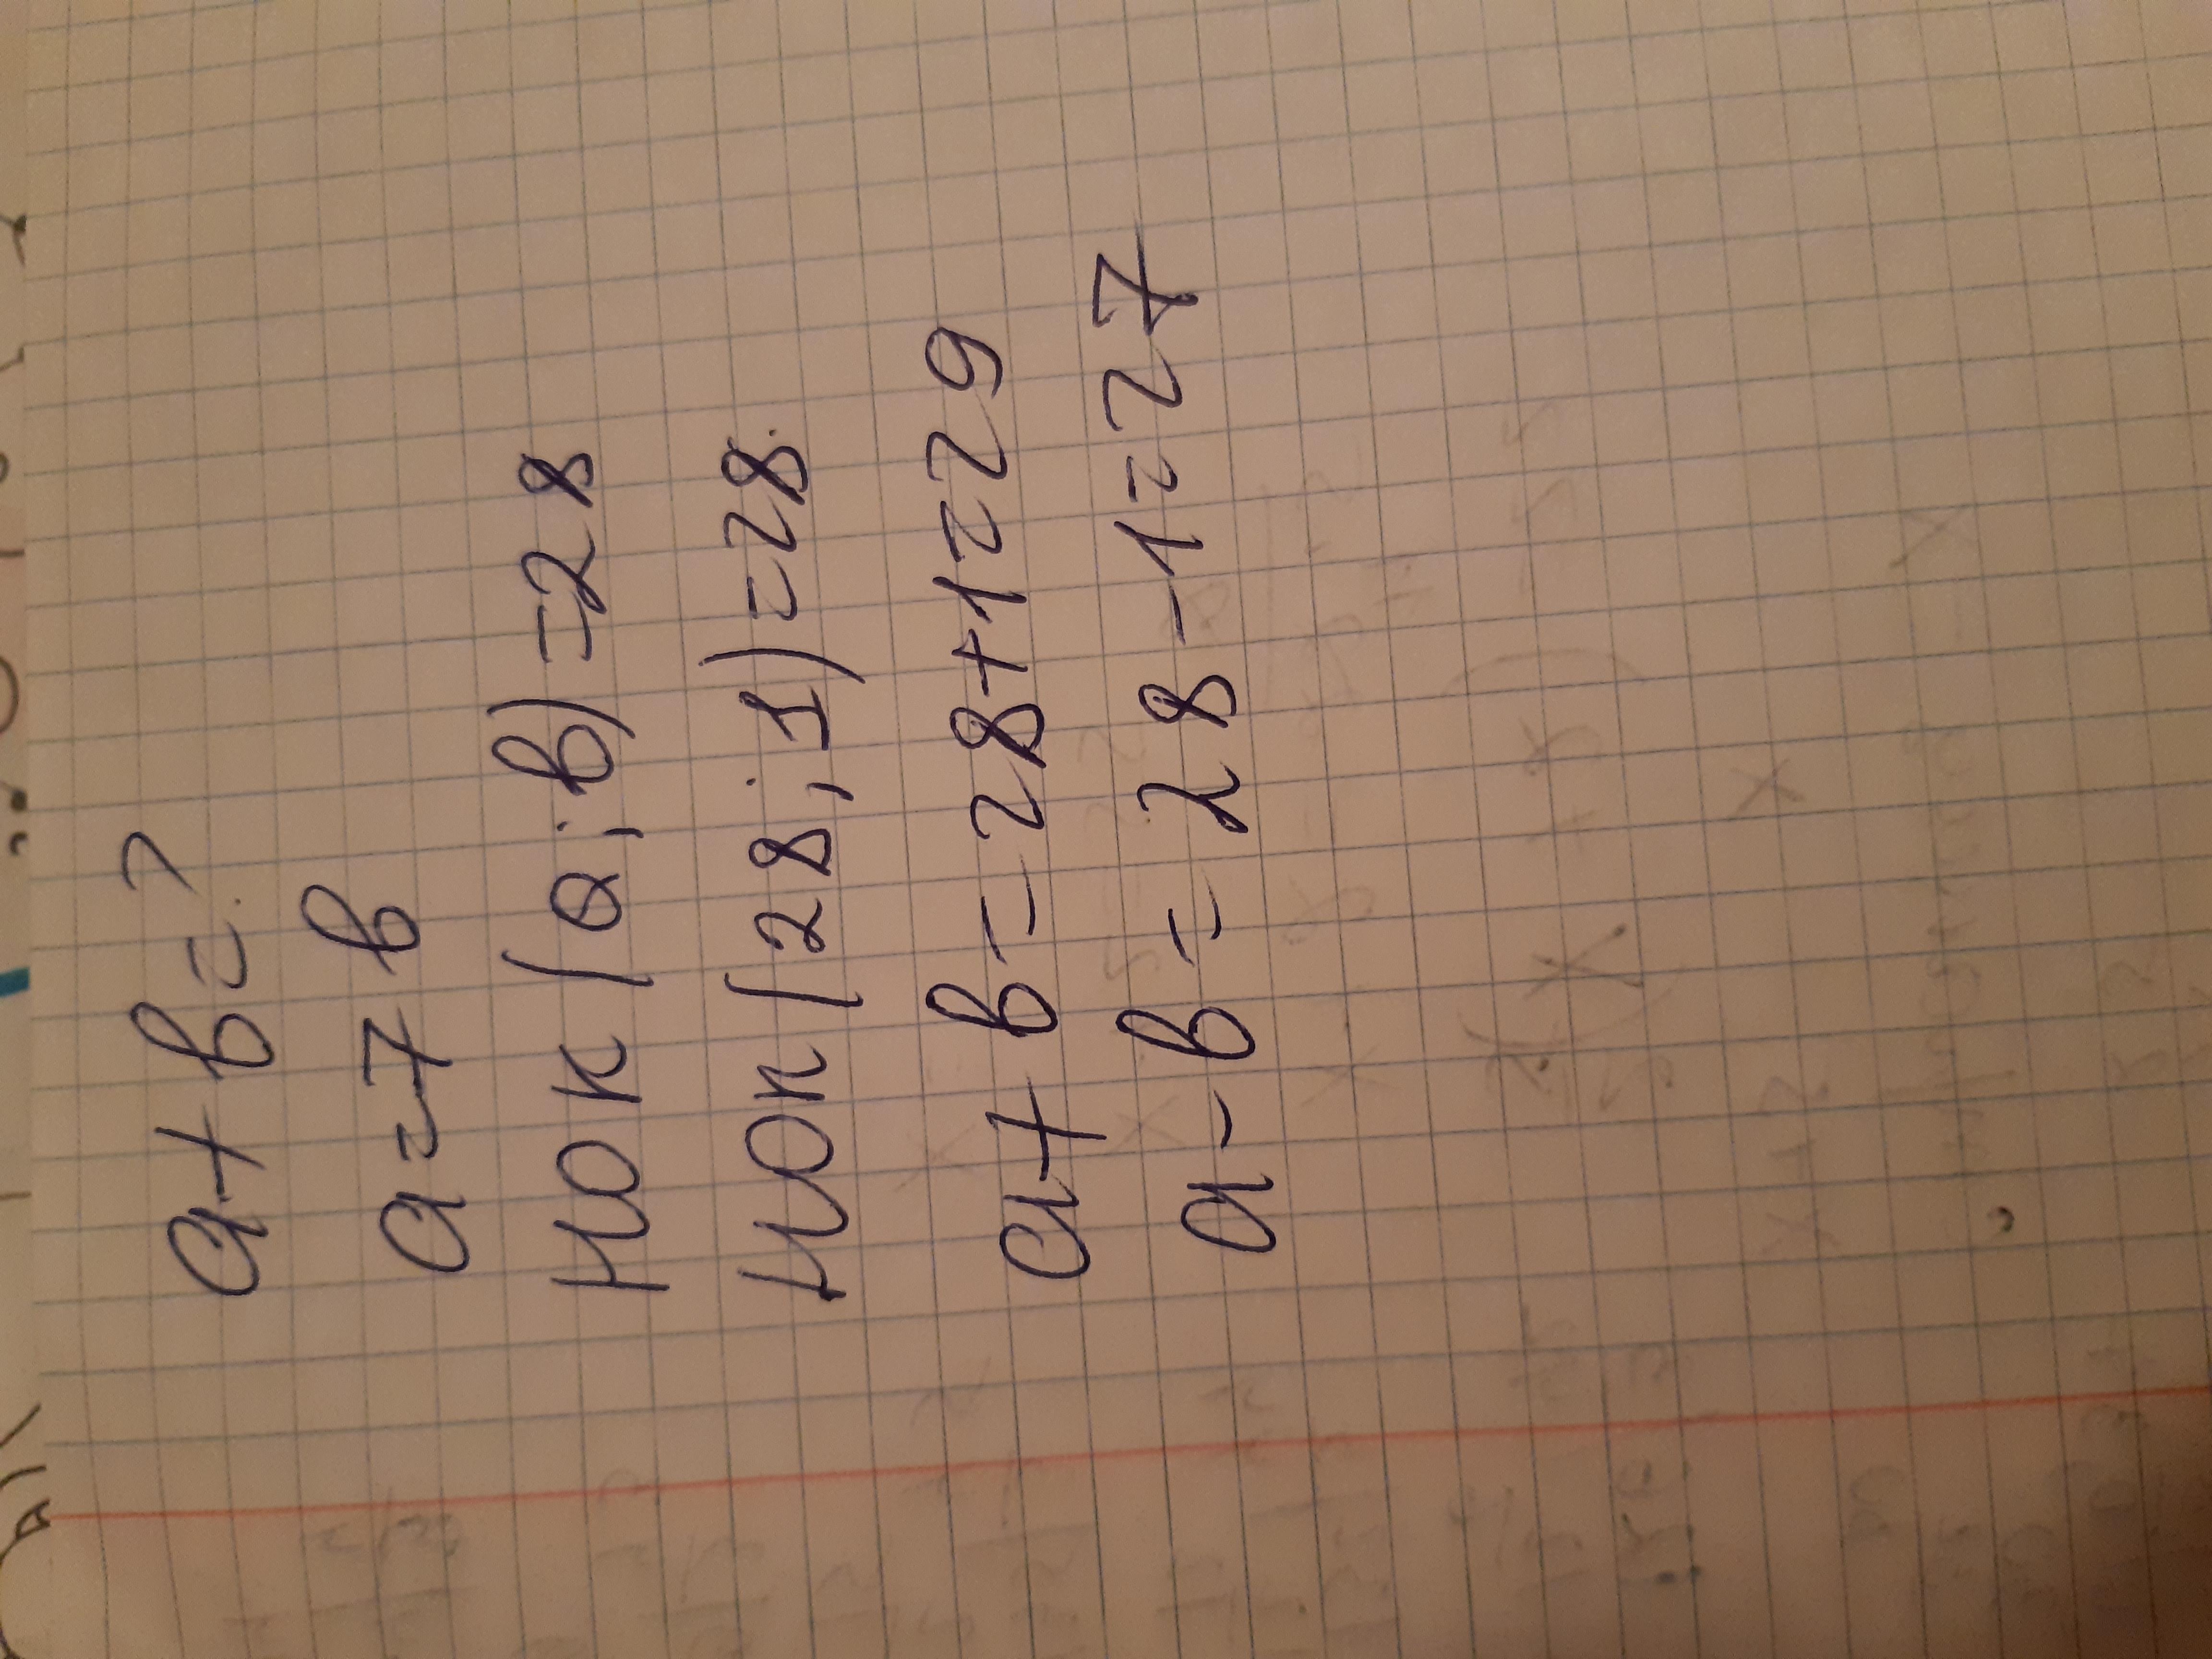 a+b=?
a=7b
НОК(a;b)=28
НОК(28;1)=28.
a+b=28+1=29
a-b=28-1=27